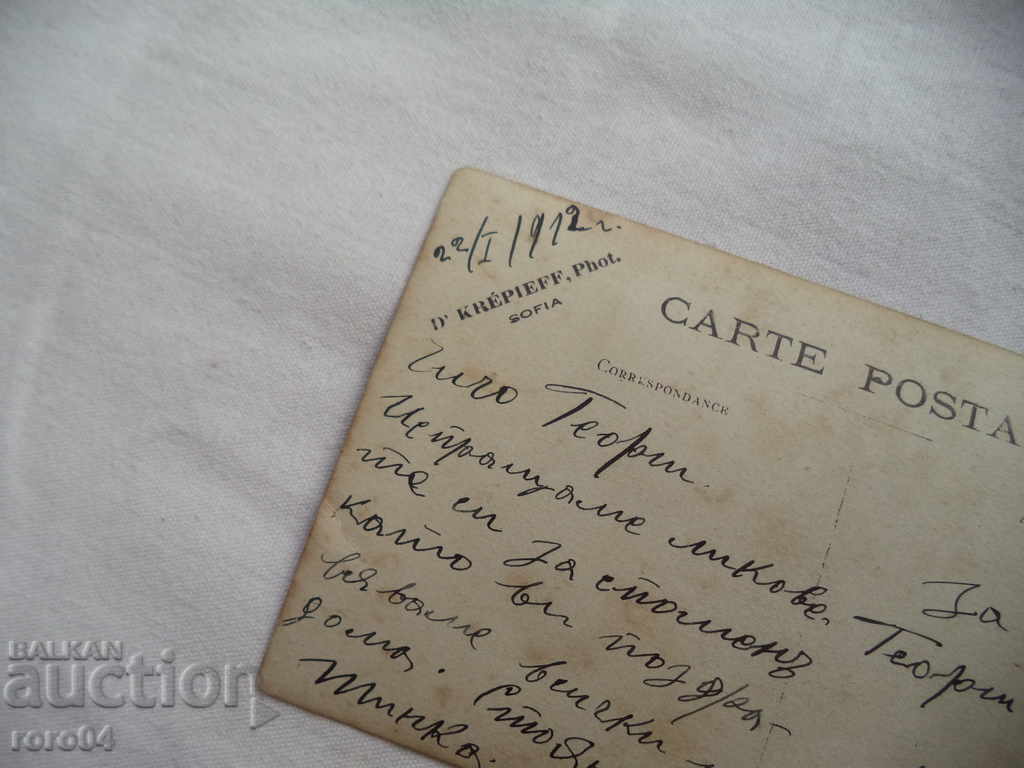 22/I/912 г.
D' KRÉPIEFF, Phot.
SOFIA
CARTE POSTA
CORRESPONDANCE
Чичо Георги.
Испращаме ликове-
те си За споменъ
като ви поздра-
вяваме всички
дома. Стоян
Минка.
За
Георги
BALKAN
auction
roro04